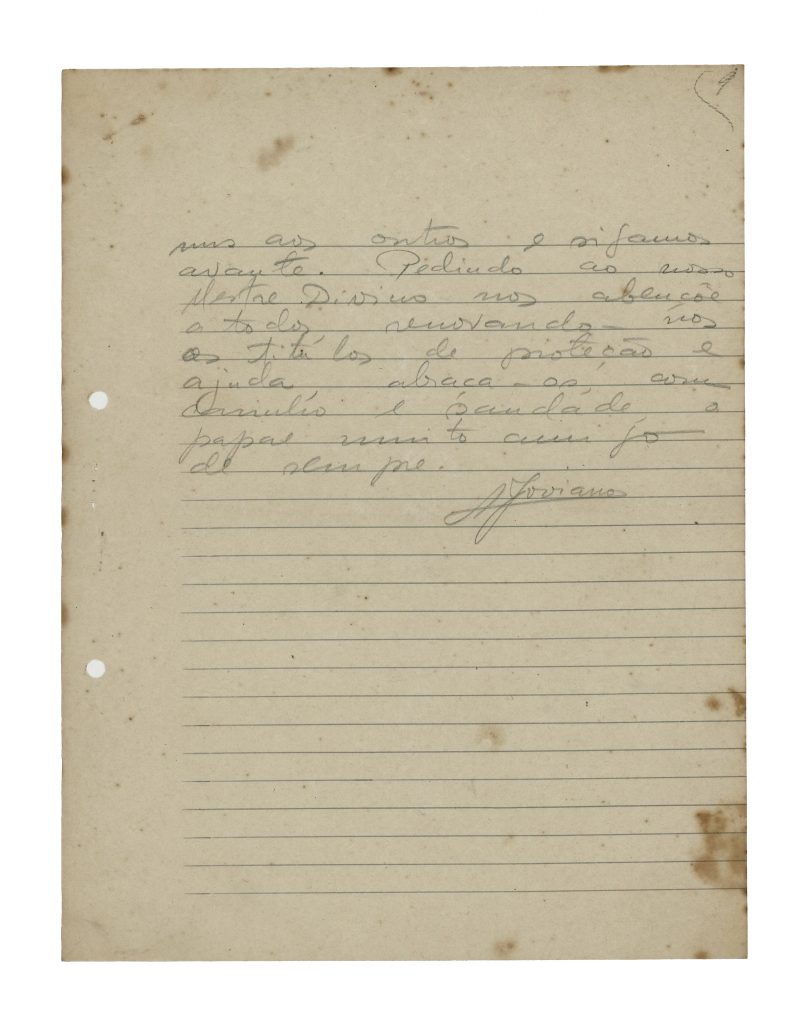 9
uns aos outros e sigamos
avante. Pedindo ao nosso
Mestre Divino nos abençõe
a todos renovando-nos
os titúlos de proteção e
ajuda abraca-os, com
carinho e saudáde, o
papae muito amigo
de sempre.
A Joviano